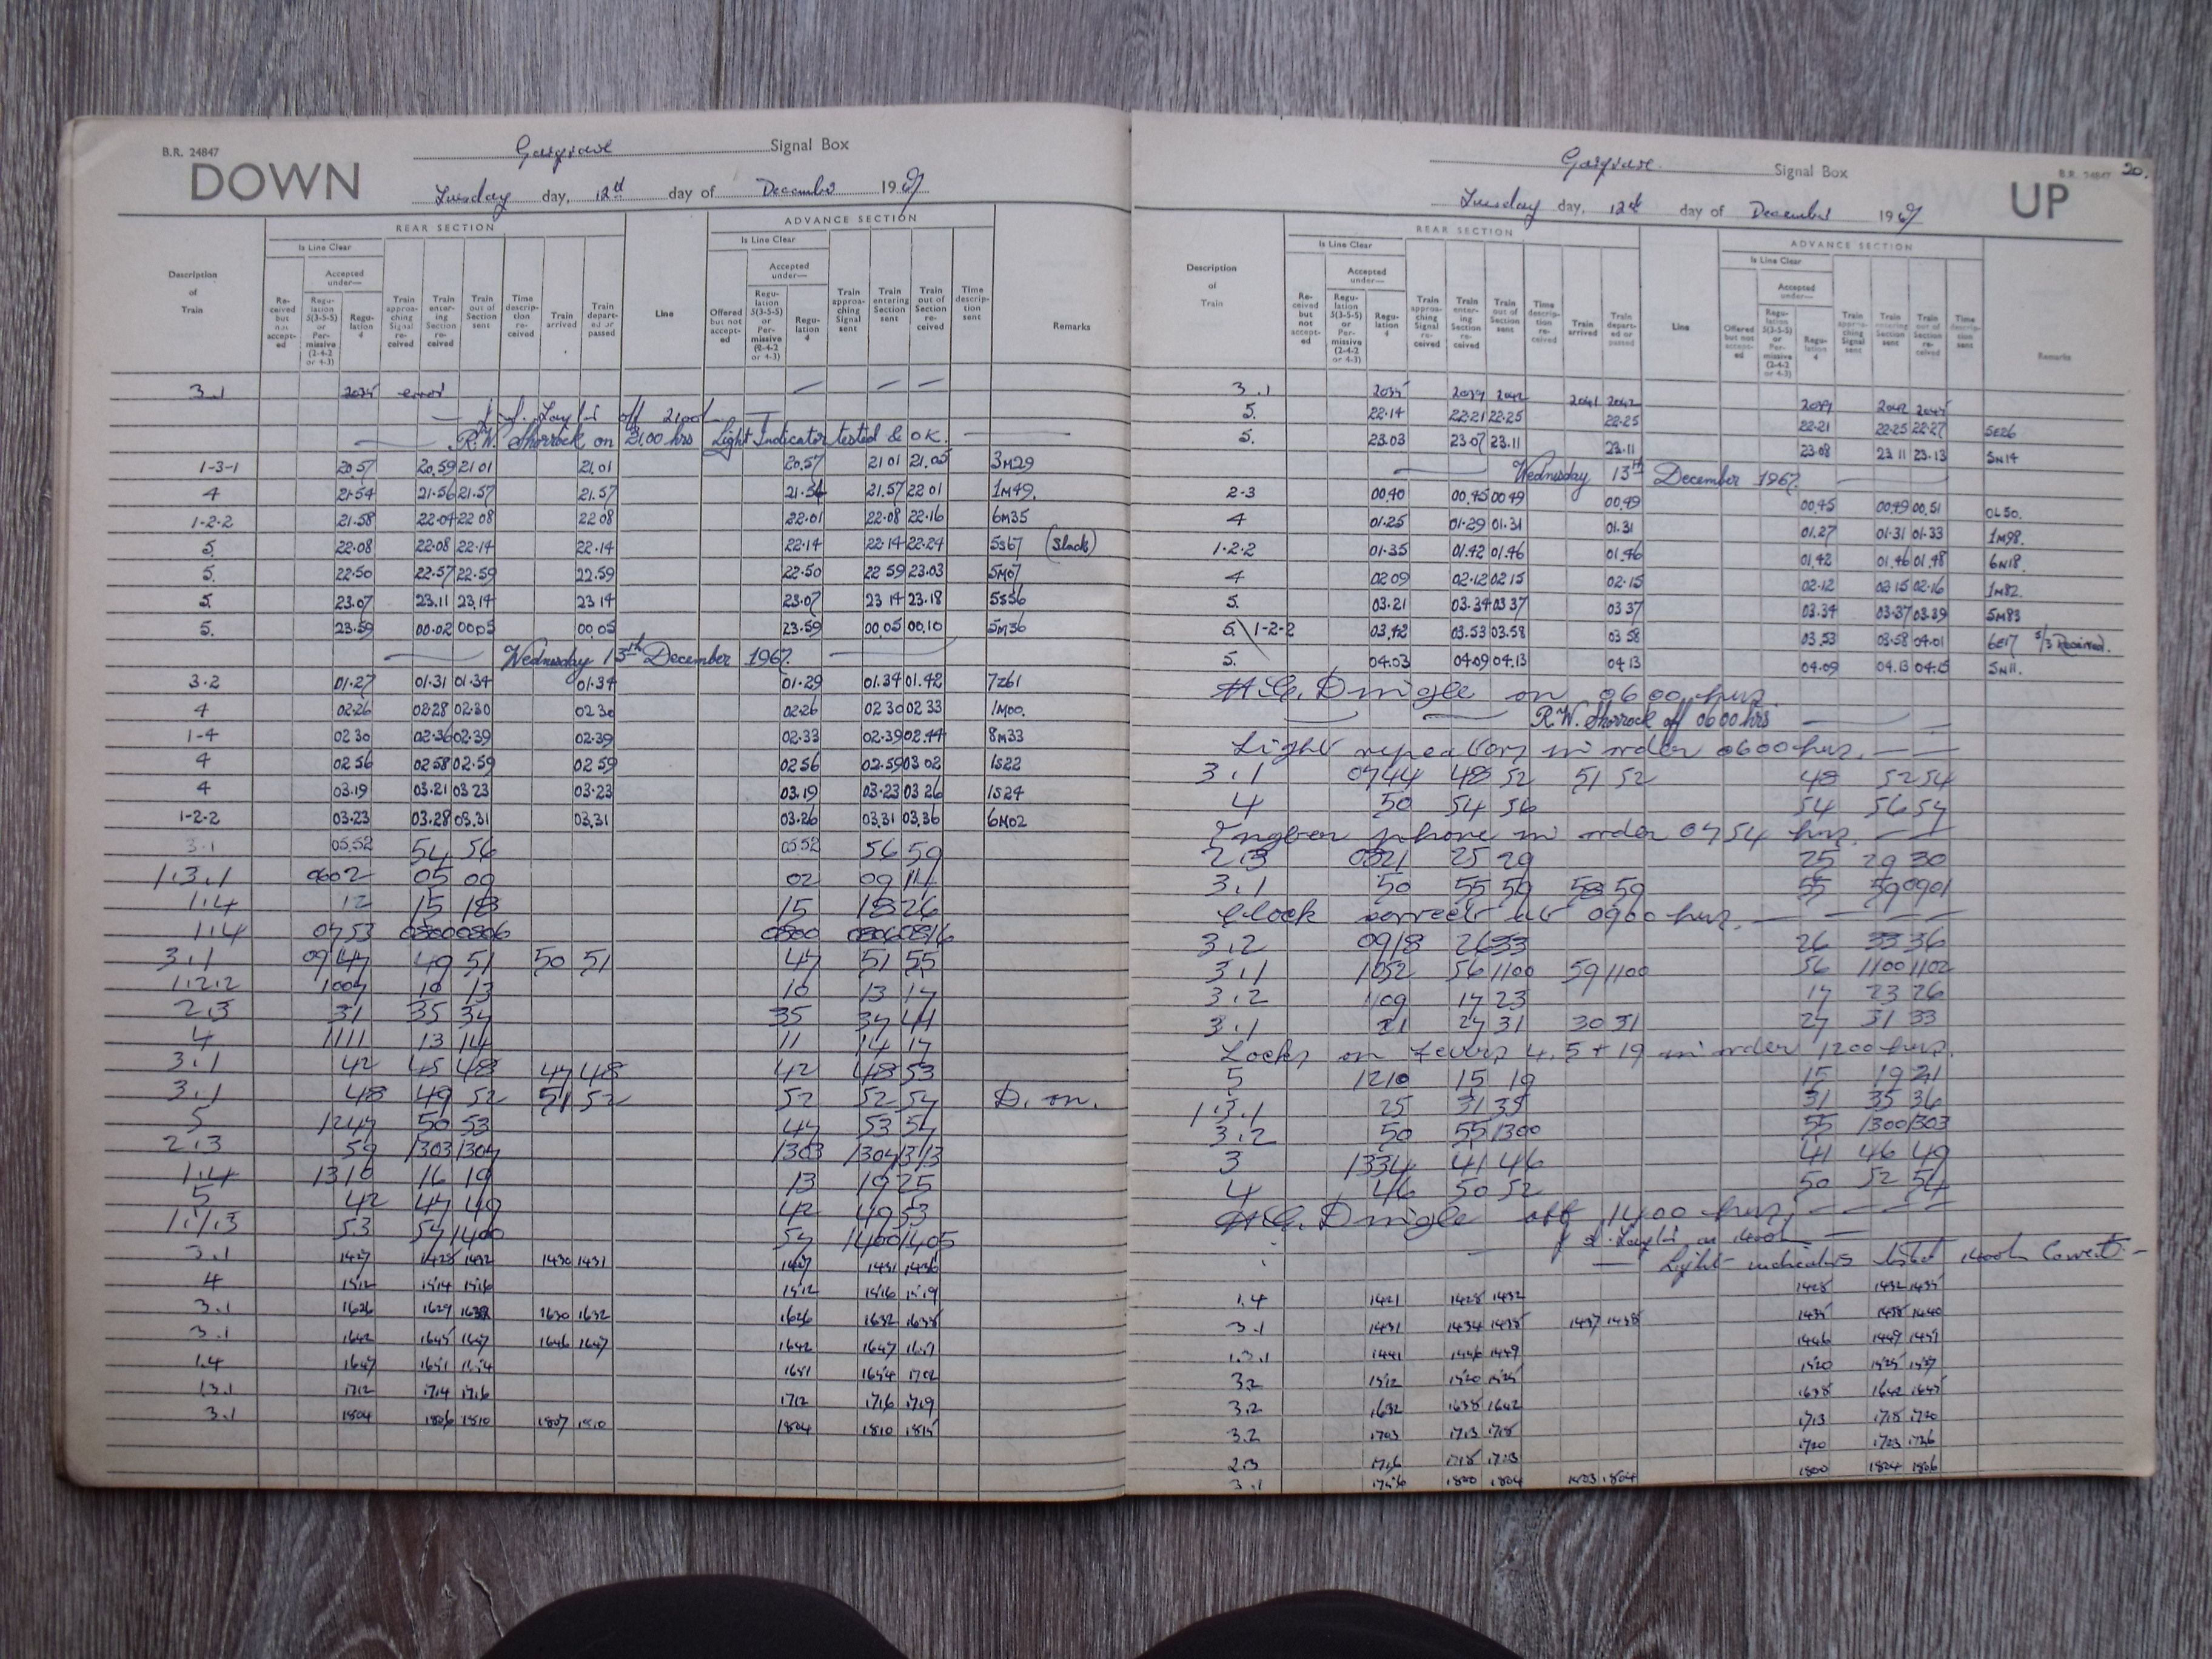 B.R. 24847
DOWN
Gargrave Signal Box
Tuesday day, 12th day of December 1967
REAR SECTION
ADVANCE SECTION
Is Line Clear
Is Line Clear
Description of Train
Re-ceived but not accept-ed
Accepted under—
Regu-lation 5(3-5-5) or Per-missive (2-4-2 or 4-3)
Regu-lation 4
Train approa-ching Signal re-ceived
Train enter-ing Section re-ceived
Train out of Section sent
Time descrip-tion re-ceived
Train arrived
Train depart-ed or passed
Line
Offered but not accept-ed
Accepted under—
Regu-lation 5(3-5-5) or Per-missive (2-4-2 or 4-3)
Regu-lation 4
Train approa-ching Signal sent
Train entering Section sent
Train out of Section re-ceived
Time descrip-tion sent
Remarks
3.1 2035 error — — —
off 2100h
R.W. Shorrock on 21.00 hrs Light Indicator tested & OK.
1-3-1 20.57 20.59 21 01 21.01 20.57 21 01 21.05 3M29
4 21.54 21.56 21.57 21.57 21.56 21.57 22 01 1M49.
1-2-2 21.58 22.04 22 08 22 08 22.01 22.08 22.16 6M35
5. 22.08 22.08 22.14 22.14 22.14 22.14 22.24 5S67 (Slack)
5. 22.50 22.57 22.59 22.59 22.50 22 59 23.03 5M07
5. 23.07 23.11 23.14 23 14 23.07 23 14 23.18 5S56
5. 23.59 00.02 00.05 00 05 23.59 00.05 00.10 5M36
Wednesday 13th December 1967.
3.2 01.27 01.31 01.34 01.34 01.29 01.34 01.42 7Z61
4 02.26 02.28 02.30 02 30 02.26 02 30 02 33 1M00.
1-4 02 30 02.36 02.39 02.39 02.33 02.39 02.44 8M33
4 02 56 02 58 02.59 02 59 02 56 02.59 03 02 1S22
4 03.19 03.21 03 23 03.23 03.19 03.23 03 26 1S24
1-2-2 03.23 03.28 03.31 03.31 03.26 03.31 03.36 6M02
3.1 05.52 54 56 05.52 56 59
1.3.1 0602 05 09 02 09 14
1.4 12 15 18 15 18 26
1.4 0753 0800 0806 0800 0806 0816
3.1 0947 49 51 50 51 47 51 55
1.2.2 1007 10 13 10 13 17
2.3 31 35 37 35 37 41
4 1111 13 14 11 14 17
3.1 42 45 48 47 48 42 48 53
3.1 48 49 52 51 52 52 52 57 D. m.
5 1247 50 53 47 53 57
2.3 59 1303 1307 1303 1307 1313
1.4 1310 16 19 13 19 25
5 42 47 49 42 49 53
1.1.3 53 57 1400 57 1400 1405
3.1 1427 1428 1432 1430 1431 1427 1431 1436
4 1512 1514 1516 1512 1516 1519
3.1 1626 1629 1632 1630 1632 1626 1632 1638
3.1 1642 1645 1647 1646 1647 1642 1647 1651
1.4 1647 1651 1654 1651 1654 1702
1.3.1 1712 1714 1716 1712 1716 1719
3.1 1804 1806 1810 1807 1810 1804 1810 1815
Gargrave Signal Box
B.R. 24847 20.
Tuesday day, 12th day of December 1967
UP
REAR SECTION
ADVANCE SECTION
Is Line Clear
Is Line Clear
Description of Train
Re-ceived but not accept-ed
Accepted under—
Regu-lation 5(3-5-5) or Per-missive (2-4-2 or 4-3)
Regu-lation 4
Train approa-ching Signal re-ceived
Train enter-ing Section re-ceived
Train out of Section sent
Time descrip-tion re-ceived
Train arrived
Train depart-ed or passed
Line
Offered but not accept-ed
Accepted under—
Regu-lation 5(3-5-5) or Per-missive (2-4-2 or 4-3)
Regu-lation 4
Train approa-ching Signal sent
Train entering Section sent
Train out of Section re-ceived
Time descrip-tion sent
Remarks
3.1 2035 2039 2042 2041 2042 2039 2042 2045
5. 22.14 22.21 22.25 22.25 22.21 22.25 22.27 5E26
5. 23.03 23 07 23.11 23.11 23.08 23 11 23.13 5N14
Wednesday 13th December 1967.
2-3 00.40 00.45 00 49 00.49 00.45 00.49 00.51 0L50.
4 01.25 01.29 01.31 01.31 01.27 01.31 01.33 1M98.
1.2.2 01.35 01.42 01.46 01.46 01.42 01.46 01.48 6N18.
4 02 09 02.12 02 15 02.15 02.12 02 15 02.16 1M82.
5. 03.21 03.34 03 37 03 37 03.34 03.37 03.39 5M83
5. \ 1-2-2 03.42 03.53 03.58 03 58 03.53 03.58 04.01 6E17 5/3 Received.
5. 04.03 04.09 04.13 04 13 04.09 04.13 04.15 5N11.
H.C. Dingle on 0600 hrs.
R.W. Shorrock off 0600 hrs
Light repeaters in order 0600 hrs.
3.1 0744 48 52 51 52 48 52 54
4 50 54 56 54 56 57
phone in order 0754 hrs.
2.3 0821 25 29 25 29 30
3.1 50 55 59 58 59 55 59 0901
Clock correct at 0900 hrs.
3.2 0918 26 33 26 33 36
3.1 1052 56 1100 59 1100 56 1100 1102
3.2 1109 17 23 17 23 26
3.1 21 27 31 30 31 27 31 33
Locks on Levers 4, 5 + 19 in order 1200 hrs.
5 1210 15 19 15 19 21
1.3.1 25 31 35 31 35 36
3.2 50 55 1300 55 1300 1303
3 1334 41 46 41 46 49
4 46 50 52 50 52 54
H.C. Dingle off 1400 hrs.
on 1400h
Light indicators tested 1400h Correct.
1.4 1421 1428 1432 1428 1432 1435
3.1 1431 1434 1438 1437 1438 1435 1438 1440
1.3.1 1441 1446 1449 1446 1449 1451
3.2 1512 1520 1525 1520 1525 1527
3.2 1632 1638 1642 1638 1642 1645
3.2 1703 1713 1718 1713 1718 1720
2.3 1716 1718 1723 1720 1723 1726
3.1 1756 1800 1804 1803 1804 1800 1804 1806